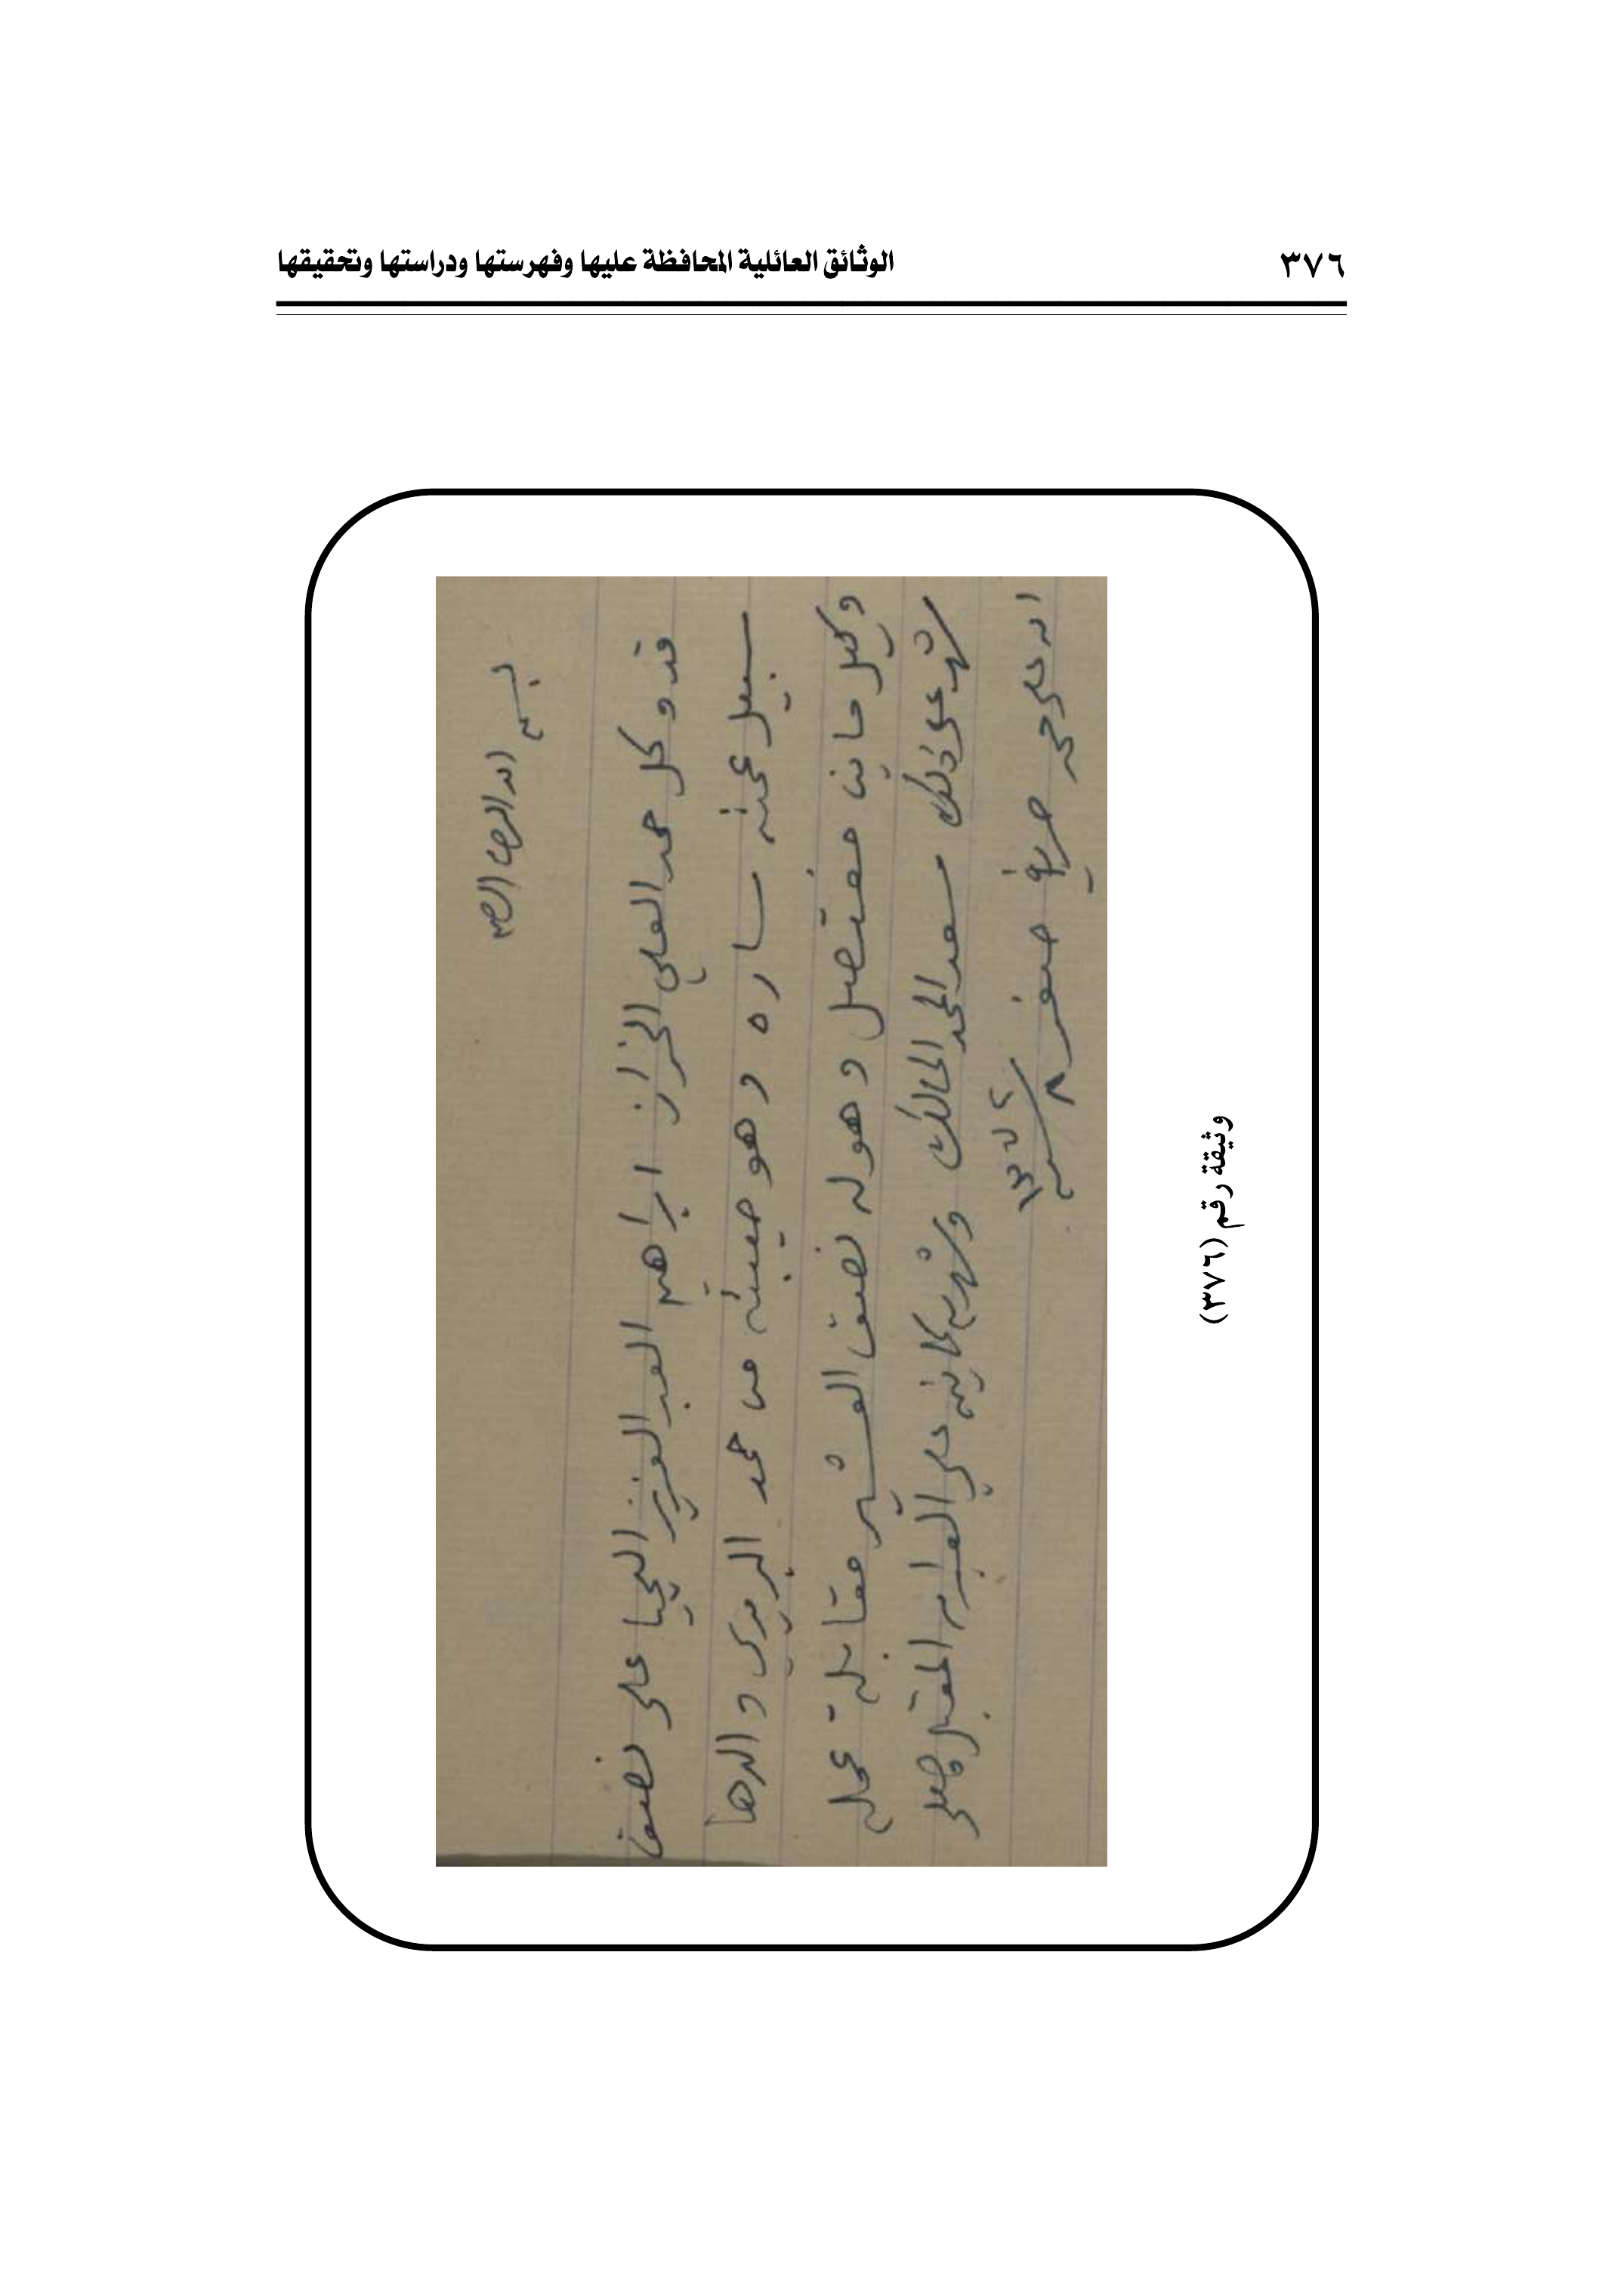 ٣٧٦
الوثائق العائلية المحافظة عليها وفهرستها ودراستها وتحقيقها
بسم الله الرحمن الرحيم
قد وكل حمد العلي الخزاز ابراهيم العبد العزيز اليحيا على نصيف
سبيل عمته ساره وهو صيبته من حمد البريدي والدها
وكيل جايز مفتصل وهوله نصيف العشير مقابلة عماله
شهد على ذلك سعد المحمد المالك وشهد به كاتبه علي العبدالله المقبل وصلى
الله على محمد حرر في صفر
١٣٥٢
وثيقة رقم (٣٧٦)